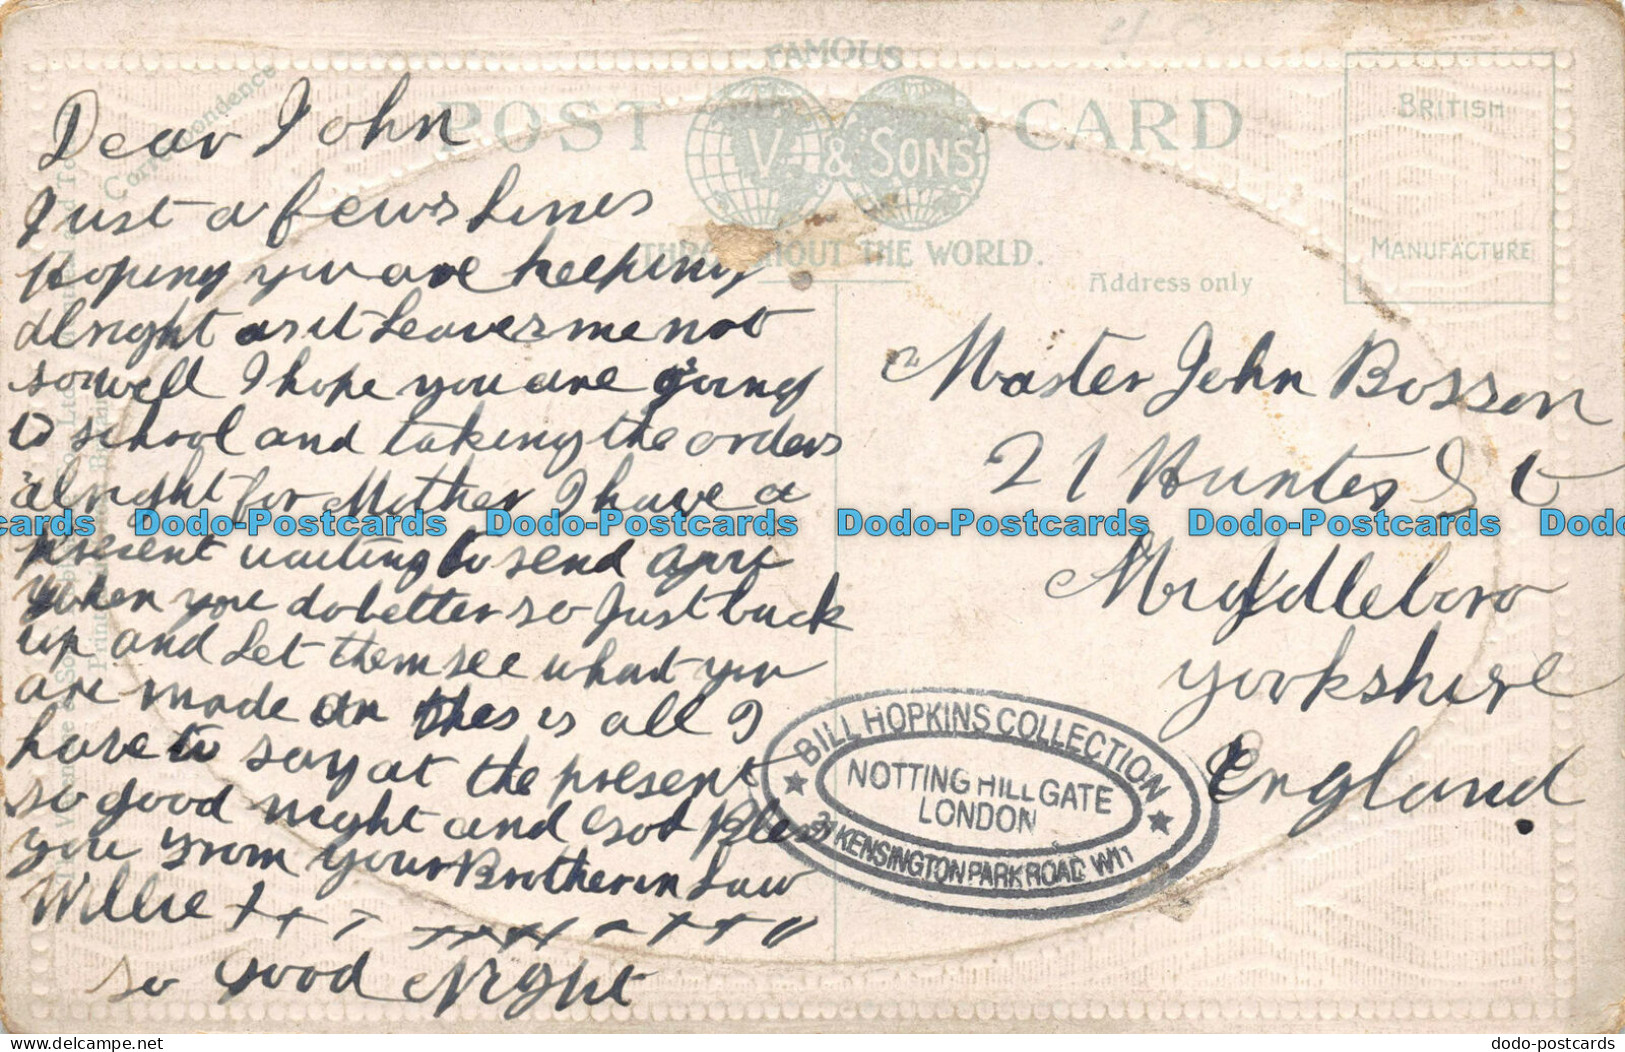 FAMOUS
POST CARD
V. & SONS
THROUGHOUT THE WORLD.
Correspondence
Address only
BRITISH
MANUFACTURE
Dear John
Just a few Lines
hoping you are keeping
alright as it Leaves me not
so well I hope you are going
to school and taking the orders
alright for Mother I have a
present waiting to send you
when you do better so Just buck
up and Let them see what you
are made on this is all I
have to say at the present
so good night and God Bless
you from your Brother in Law
Willie
so good Night
Master John Bosson
21 Hunter St
Middleboro
Yorkshire
England
BILL HOPKINS COLLECTION
NOTTING HILL GATE
LONDON
37 KENSINGTON PARK ROAD W11
cards Dodo-Postcards Dodo-Postcards Dodo-Postcards Dodo-Postcards Dodo
delcampe.net
dodo-postcards